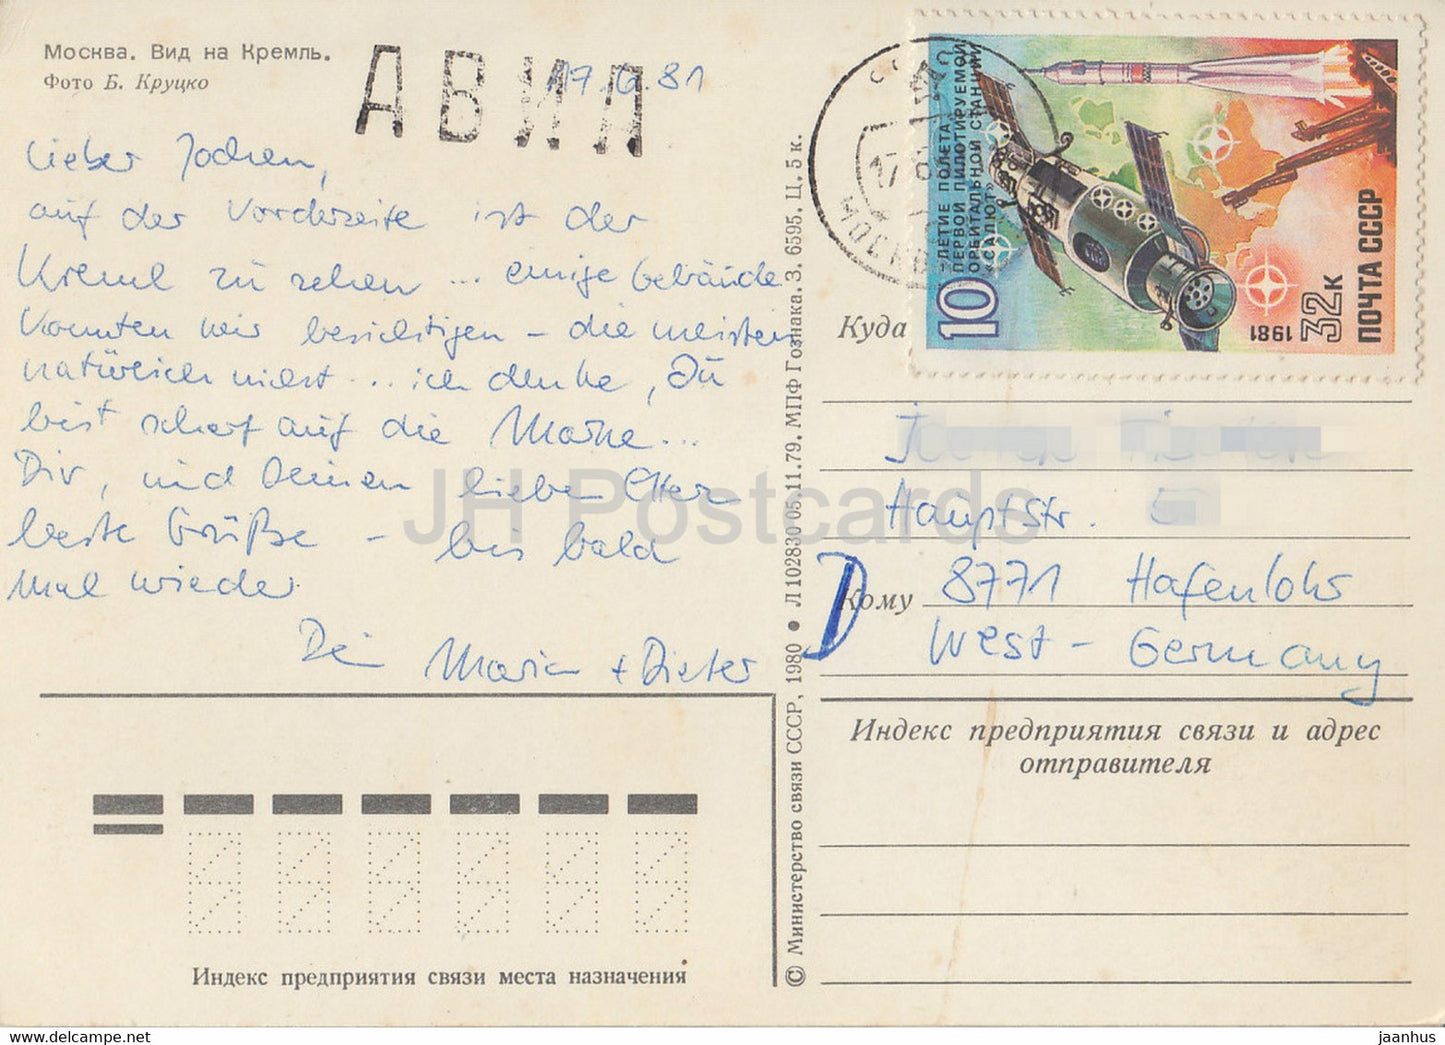 Москва. Вид на Кремль.
Фото Б. Круцко
АВИА
17.6.81
Lieber Jochen,
auf der Vorderseite ist der
Kreml zu sehen ... einige Gebäude
konnten wir besichtigen – die meisten
natürlich nicht ... ich denke, Du
bist scharf auf die Marke...
Dir, und Deinen lieben Eltern
beste Grüße – bis bald
mal wieder
Dein Maria + Dieter
Индекс предприятия связи места назначения
© Министерство связи СССР, 1980 • Л 102830 05.11.79. МПФ Гознака. З. 6595. Ц. 5 к.
10
-ЛЕТИЕ ПОЛЕТА
ПЕРВОЙ ПИЛОТИРУЕМОЙ
ОРБИТАЛЬНОЙ СТАНЦИИ
«САЛЮТ»
1981
32к
ПОЧТА СССР
МОСКВА
17
Куда
Hauptstr. 5
D
Кому 8771 Hafenlohr
West-Germany
Индекс предприятия связи и адрес
отправителя
JH Postcards
www.delcampe.net
jaanhus